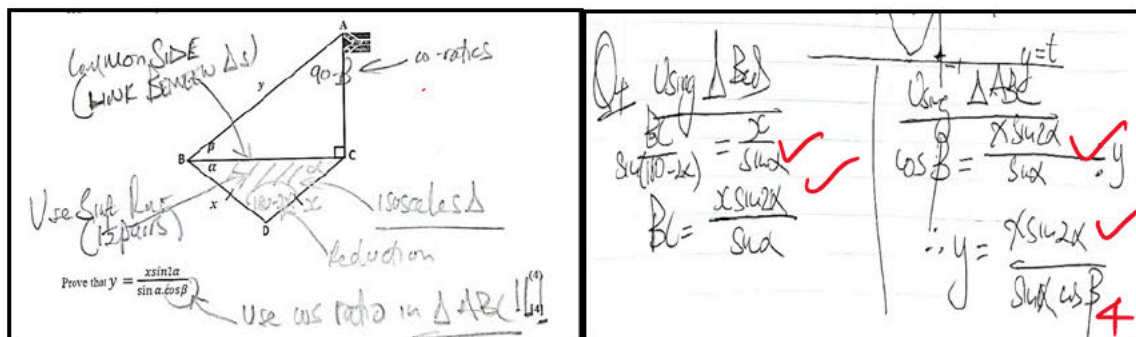 A
COMMON SIDE
(LINK BETWEEN Δs)
90-β
co-ratios
y
β
B
α
α
C
Use Sine Rule
(2 pairs)
x
180-2α
x
isosceles Δ
D
Reduction
Prove that y = xsin2α / sin α.cosβ
(4)
[4]
Use cos ratio in Δ ABC!
y=t
-1
Q4 Using Δ BCD
BC / sin(180-2α) = x / sinα
BC = x sin2α / sinα
Using Δ ABC
cos β = x sin2α / sinα . y
∴ y = x sin2α / sinα cos β
4